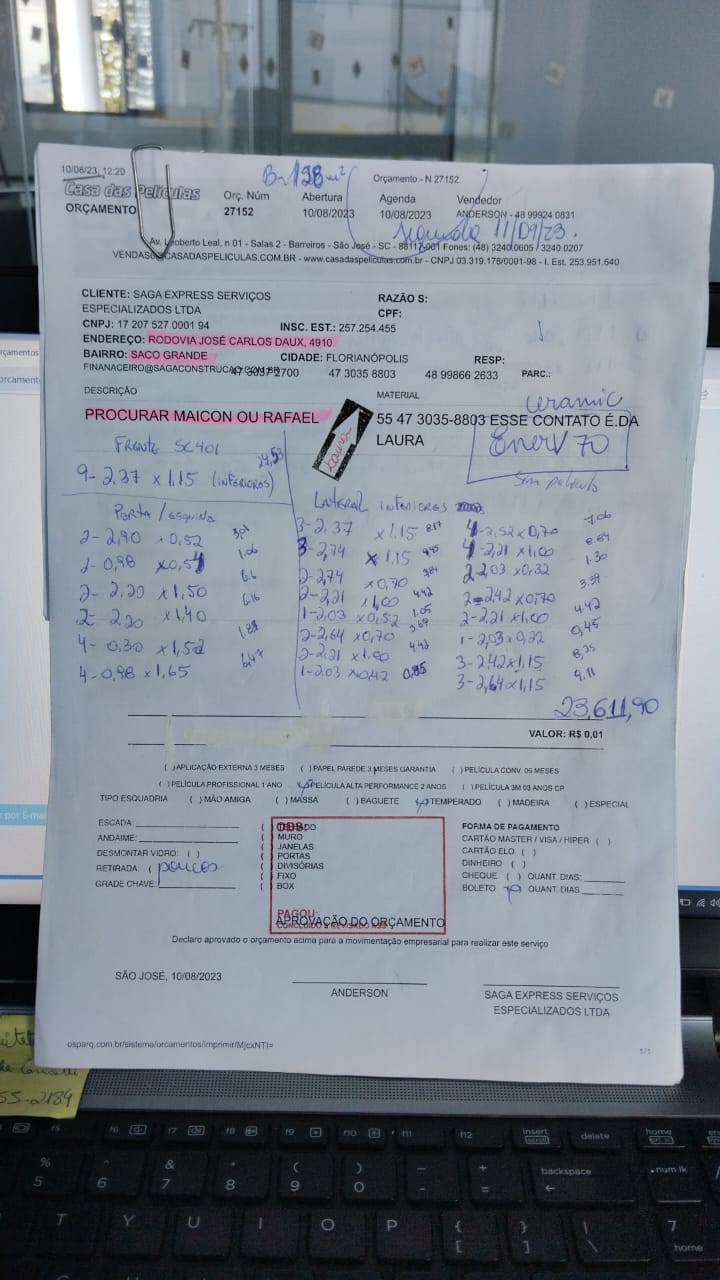 10/08/23, 12:20
Orçamento - N 27152
128 m²
Casa das Películas
ORÇAMENTO
Orç. Núm
27152
Abertura
10/08/2023
Agenda
10/08/2023
Vendedor
ANDERSON - 48 99924 0831
Segunda 11/09/23.
Av. Leoberto Leal, n 01 - Salas 2 - Barreiros - São José - SC - 88117-001 Fones: (48) 3240.0605 / 3240.0207
VENDAS@CASADASPELICULAS.COM.BR - www.casadaspeliculas.com.br - CNPJ 03.319.178/0001-98 - I. Est. 253.951.640
CLIENTE: SAGA EXPRESS SERVIÇOS ESPECIALIZADOS LTDA
RAZÃO S:
CPF:
CNPJ: 17 207 527 0001 94
INSC. EST.: 257.254.455
ENDEREÇO: RODOVIA JOSÉ CARLOS DAUX, 4910
BAIRRO: SACO GRANDE
CIDADE: FLORIANÓPOLIS
RESP:
47 3037 2700
47 3035 8803
48 99866 2633
PARC.:
DESCRIÇÃO
MATERIAL
PROCURAR MAICON OU RAFAEL
55 47 3035-8803 ESSE CONTATO É.DA
LAURA
Laura
ceramic
Enerv 70
Sem película
FRENTE SC401
9- 2,37 x 1,15 (INFERIORES)
PORTA / ESQUINA
2- 2,90 x 0,52
2- 0,98 x 0,54 1,06
2- 2,20 x 1,50 6,6
2- 2,20 x 1,40 6,16
4- 0,30 x 1,52
4- 0,98 x 1,65 6,47
LATERAL INFERIORES
3- 2,37 x 1,15 8,17
3- 2,74 x 1,15 9,45
2- 2,74 x 0,70 3,84
2- 2,21 x 1,00 4,42
1- 2,03 x 0,52 1,05
2- 2,64 x 0,70 3,69
2- 2,21 x 1,00 4,42
1- 2,03 x 0,42 0,85
4- 2,52 x 0,70 7,06
4- 2,21 x 1,00 8,84
2 2,03 x 0,32 1,30
2- 2,42 x 0,70 3,39
2- 2,21 x 1,00 4,42
1- 2,03 x 0,22 0,45
3- 2,42 x 1,15 8,35
3- 2,64 x 1,15 9,11
23,611,90
VALOR: R$ 0,01
( ) APLICAÇÃO EXTERNA 3 MESES ( ) PAPEL PAREDE 3 MESES GARANTIA ( ) PELÍCULA CONV. 06 MESES
( ) PELÍCULA PROFISSIONAL 1 ANO (x) PELÍCULA ALTA PERFORMANCE 2 ANOS ( ) PELÍCULA 3M 03 ANOS CP
TIPO ESQUADRIA ( ) MÃO AMIGA ( ) MASSA ( ) BAGUETE (x) TEMPERADO ( ) MADEIRA ( ) ESPECIAL
ESCADA:
ANDAIME:
DESMONTAR VIDRO: ( )
RETIRADA: ( poucos
GRADE CHAVE:
OBS:
( ) MURO
( ) JANELAS
( ) PORTAS
( ) DIVISÓRIAS
( ) FIXO
( ) BOX
PAGOU:
APROVAÇÃO DO ORÇAMENTO
FORMA DE PAGAMENTO
CARTÃO MASTER / VISA / HIPER ( )
CARTÃO ELO ( )
DINHEIRO ( )
CHEQUE ( ) QUANT. DIAS:
BOLETO (x) QUANT. DIAS
Declaro aprovado o orçamento acima para a movimentação empresarial para realizar este serviço
SÃO JOSÉ, 10/08/2023
ANDERSON
SAGA EXPRESS SERVIÇOS
ESPECIALIZADOS LTDA
osparq.com.br/sistema/orcamentos/imprimir/MjcxNTI=
1/1
55-2184
f6
f7
f8
f9
f10
f11
f12
insert
delete
home
backspace
num lk
% 5
6
& 7
* 8
( 9
) 0
- _
+ =
T
Y
U
I
O
P
{ [
} ]
| \
7 home